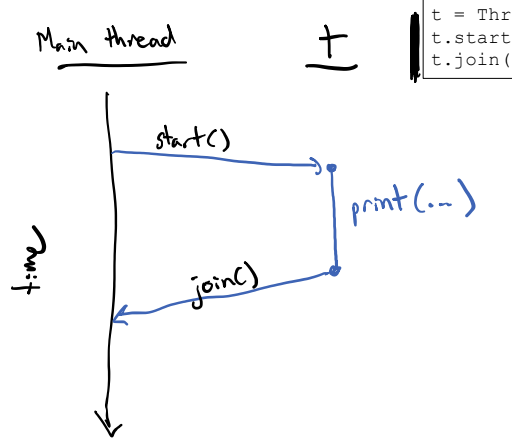 Main thread
t
t = Thr
t.start
t.join(
start()
print(...)
time
join()